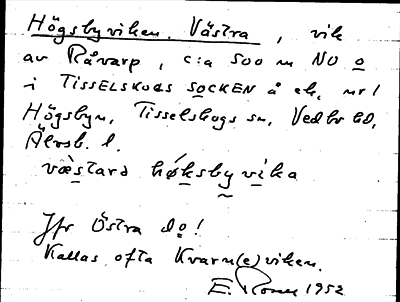 Högsbyviken. Västra, vik
av Råvarp, c:a 500 m NO o
i TISSELSKOGS SOCKEN å ek. nr 1
Högsbyn, Tisselskogs sn, Vedbo hd,
Älvsb. l.
væ̀starə høksby vika
Jfr Östra do!
Kallas ofta Kvarn(e)viken.
E. 1952